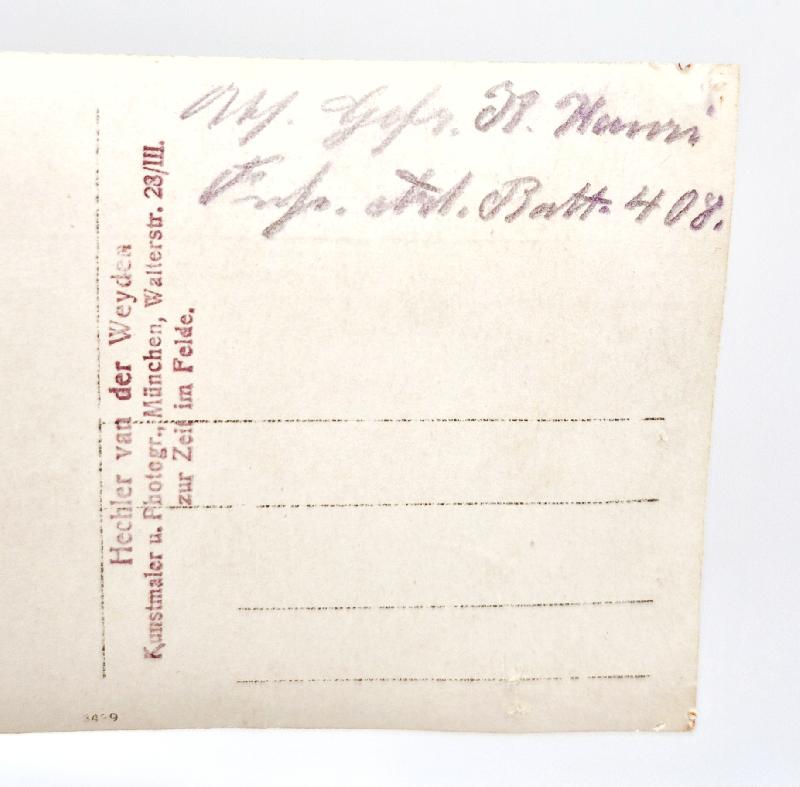 Abs. Gefr. H. Hanni
Fussa. Art. Batt. 408.
Hechler van der Weyden
Kunstmaler u. Photogr., München, Walterstr. 28/III.
zur Zeit im Felde.